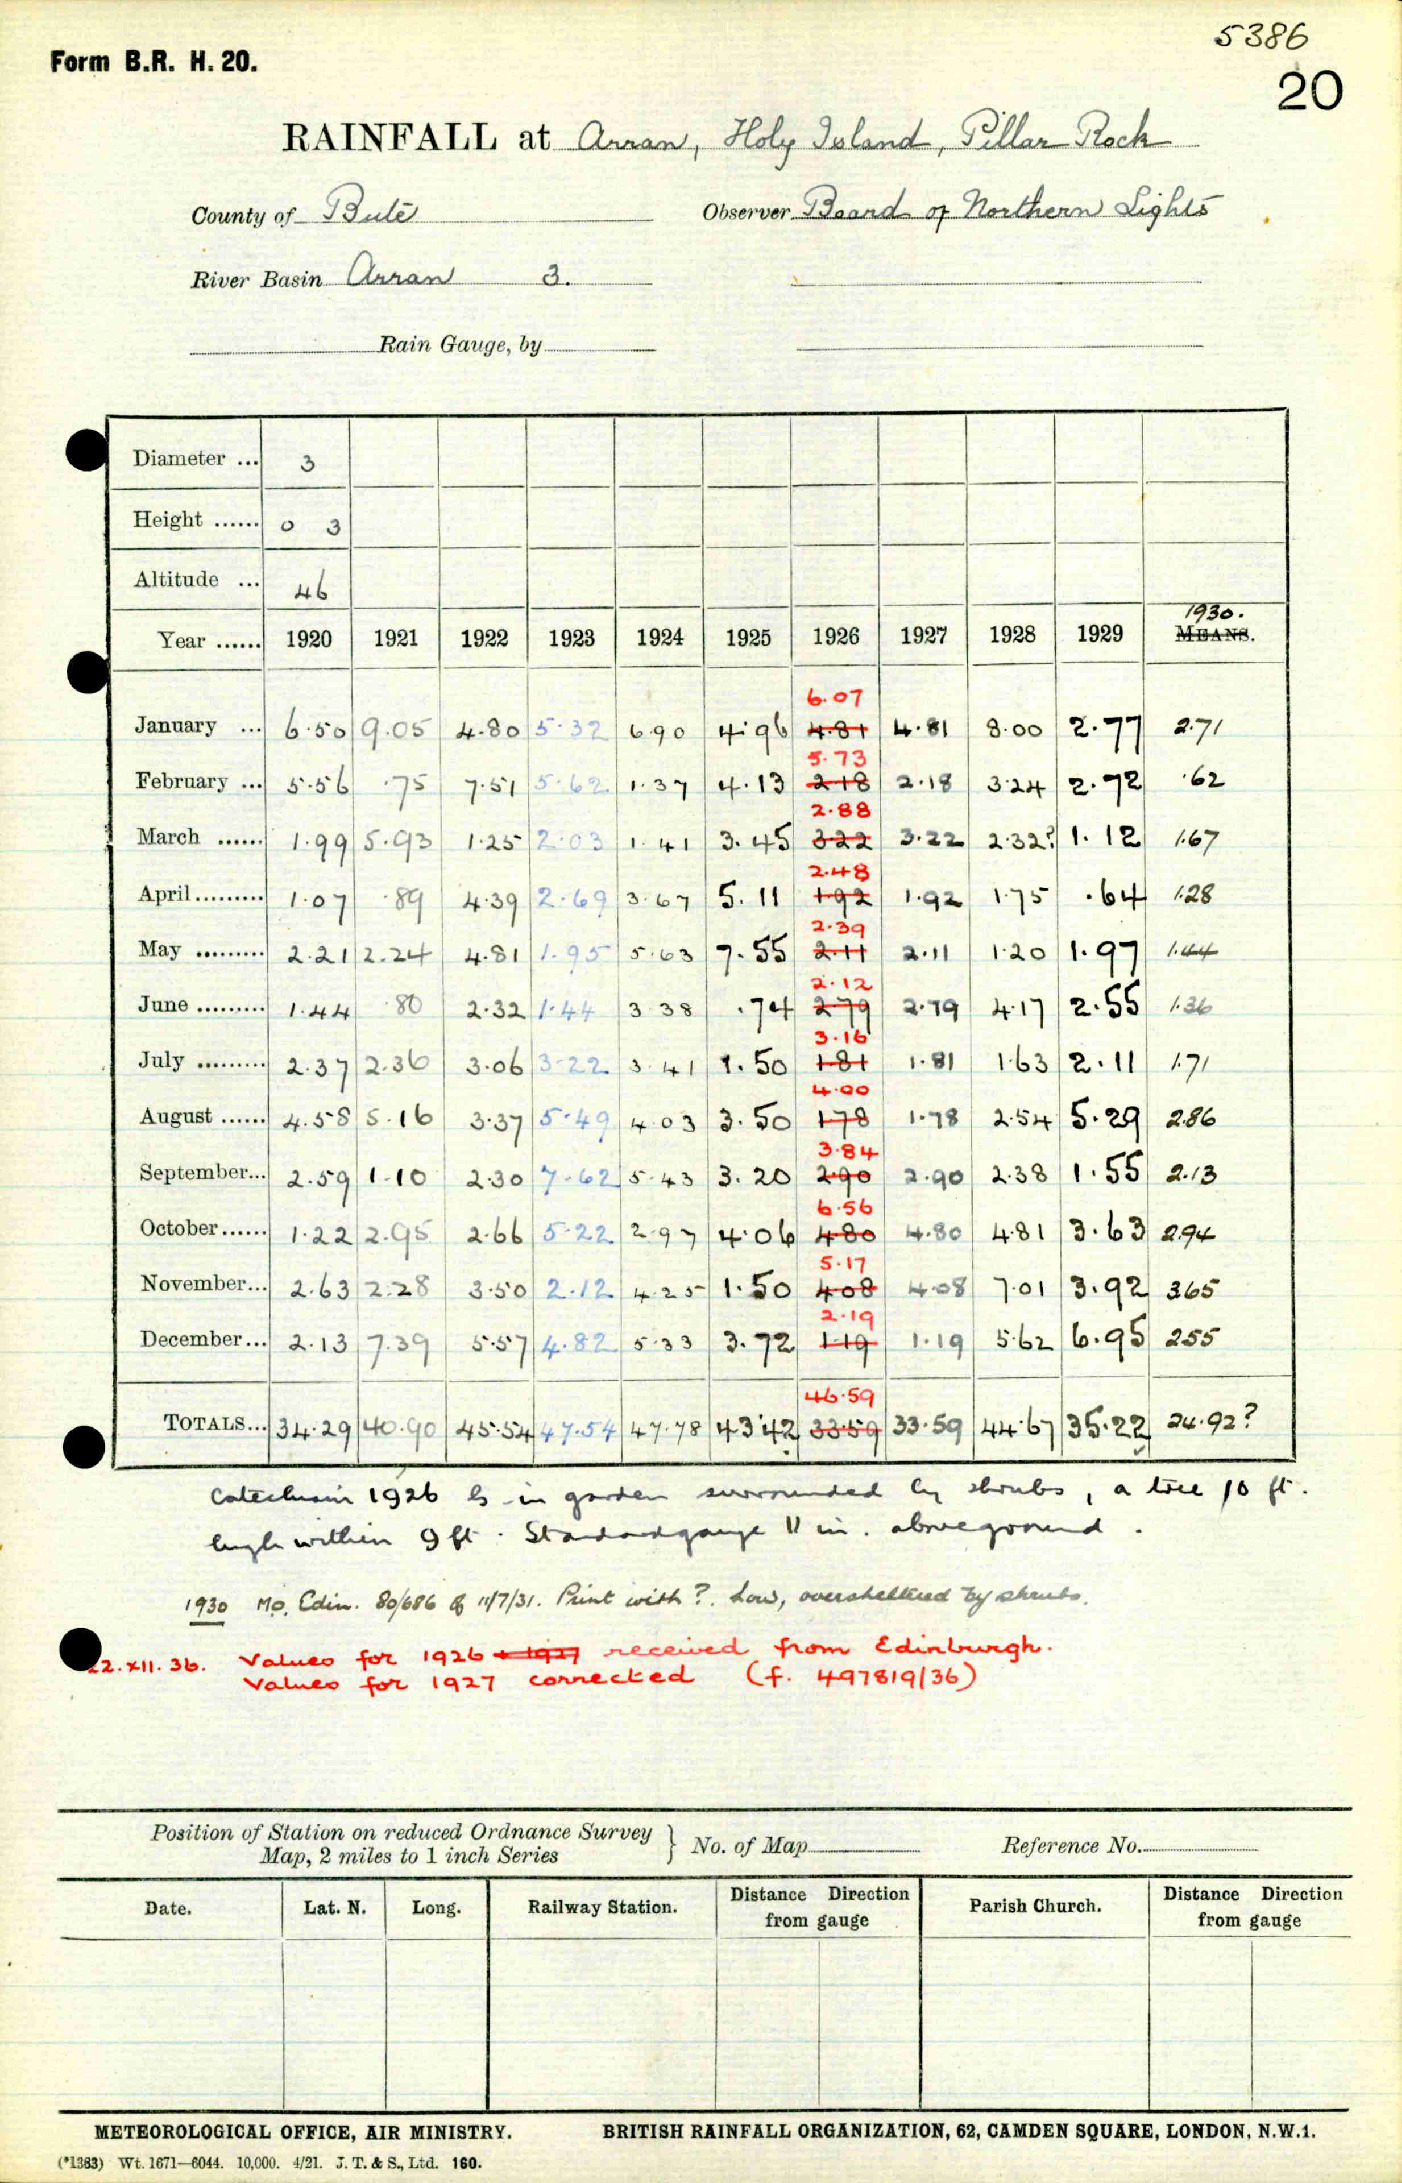 5386
Form B.R. H. 20.
20
RAINFALL at Arran, Holy Island, Pillar Rock
County of Bute Observer Board of Northern Lights
River Basin Arran 3.
Rain Gauge, by
Diameter ... 3
Height ...... 0 3
Altitude ... 46
1930.
Year ...... 1920 1921 1922 1923 1924 1925 1926 1927 1928 1929 MEANS.
6.07
January ... 6.50 9.05 4.80 5.32 6.90 4.96 4.81 4.81 8.00 2.77 2.71
5.73
February ... 5.56 .75 7.51 5.62 1.37 4.13 2.18 2.18 3.24 2.72 .62
2.88
March ...... 1.99 5.93 1.25 2.03 1.41 3.45 3.22 3.22 2.32? 1.12 1.67
2.48
April ......... 1.07 .89 4.39 2.69 3.67 5.11 1.92 1.92 1.75 .64 1.28
2.39
May ......... 2.21 2.24 4.81 1.95 5.63 7.55 2.11 2.11 1.20 1.97 1.44
2.12
June ......... 1.44 .80 2.32 1.44 3.38 .74 2.79 2.79 4.17 2.55 1.36
3.16
July ......... 2.37 2.36 3.06 3.22 3.41 1.50 1.81 1.81 1.63 2.11 1.71
4.00
August ...... 4.58 5.16 3.37 5.49 4.03 3.50 1.78 1.78 2.54 5.29 2.86
3.84
September... 2.59 1.10 2.30 7.62 5.43 3.20 2.90 2.90 2.38 1.55 2.13
6.56
October...... 1.22 2.95 2.66 5.22 2.97 4.06 4.80 4.80 4.81 3.63 2.94
5.17
November... 2.63 2.28 3.50 2.12 4.25 1.50 4.08 4.08 7.01 3.92 3.65
2.19
December... 2.13 7.39 5.57 4.82 5.33 3.72 1.19 1.19 5.62 6.95 2.55
46.59
TOTALS... 34.29 40.90 45.54 47.54 47.78 43.42 33.59 33.59 44.67 35.22 24.92?
1926 G in garden surrounded by shrubs, a tree 10 ft.
high within 9 ft. Standard gauge 11 in. above ground.
1930 M.O. Edin. 80/686 of 11/7/31. Print with ?. Low, oversheltered by shrubs.
22.XII.36. Values for 1926 + 1927 received from Edinburgh.
Values for 1927 corrected (f. 497819/36)
Position of Station on reduced Ordnance Survey
Map, 2 miles to 1 inch Series } No. of Map Reference No.
Date. Lat. N. Long. Railway Station. Distance Direction from gauge Parish Church. Distance Direction from gauge
METEOROLOGICAL OFFICE, AIR MINISTRY. BRITISH RAINFALL ORGANIZATION, 62, CAMDEN SQUARE, LONDON, N.W.1.
(*1383) Wt. 1671—6044. 10,000. 4/21. J. T. & S., Ltd. 160.